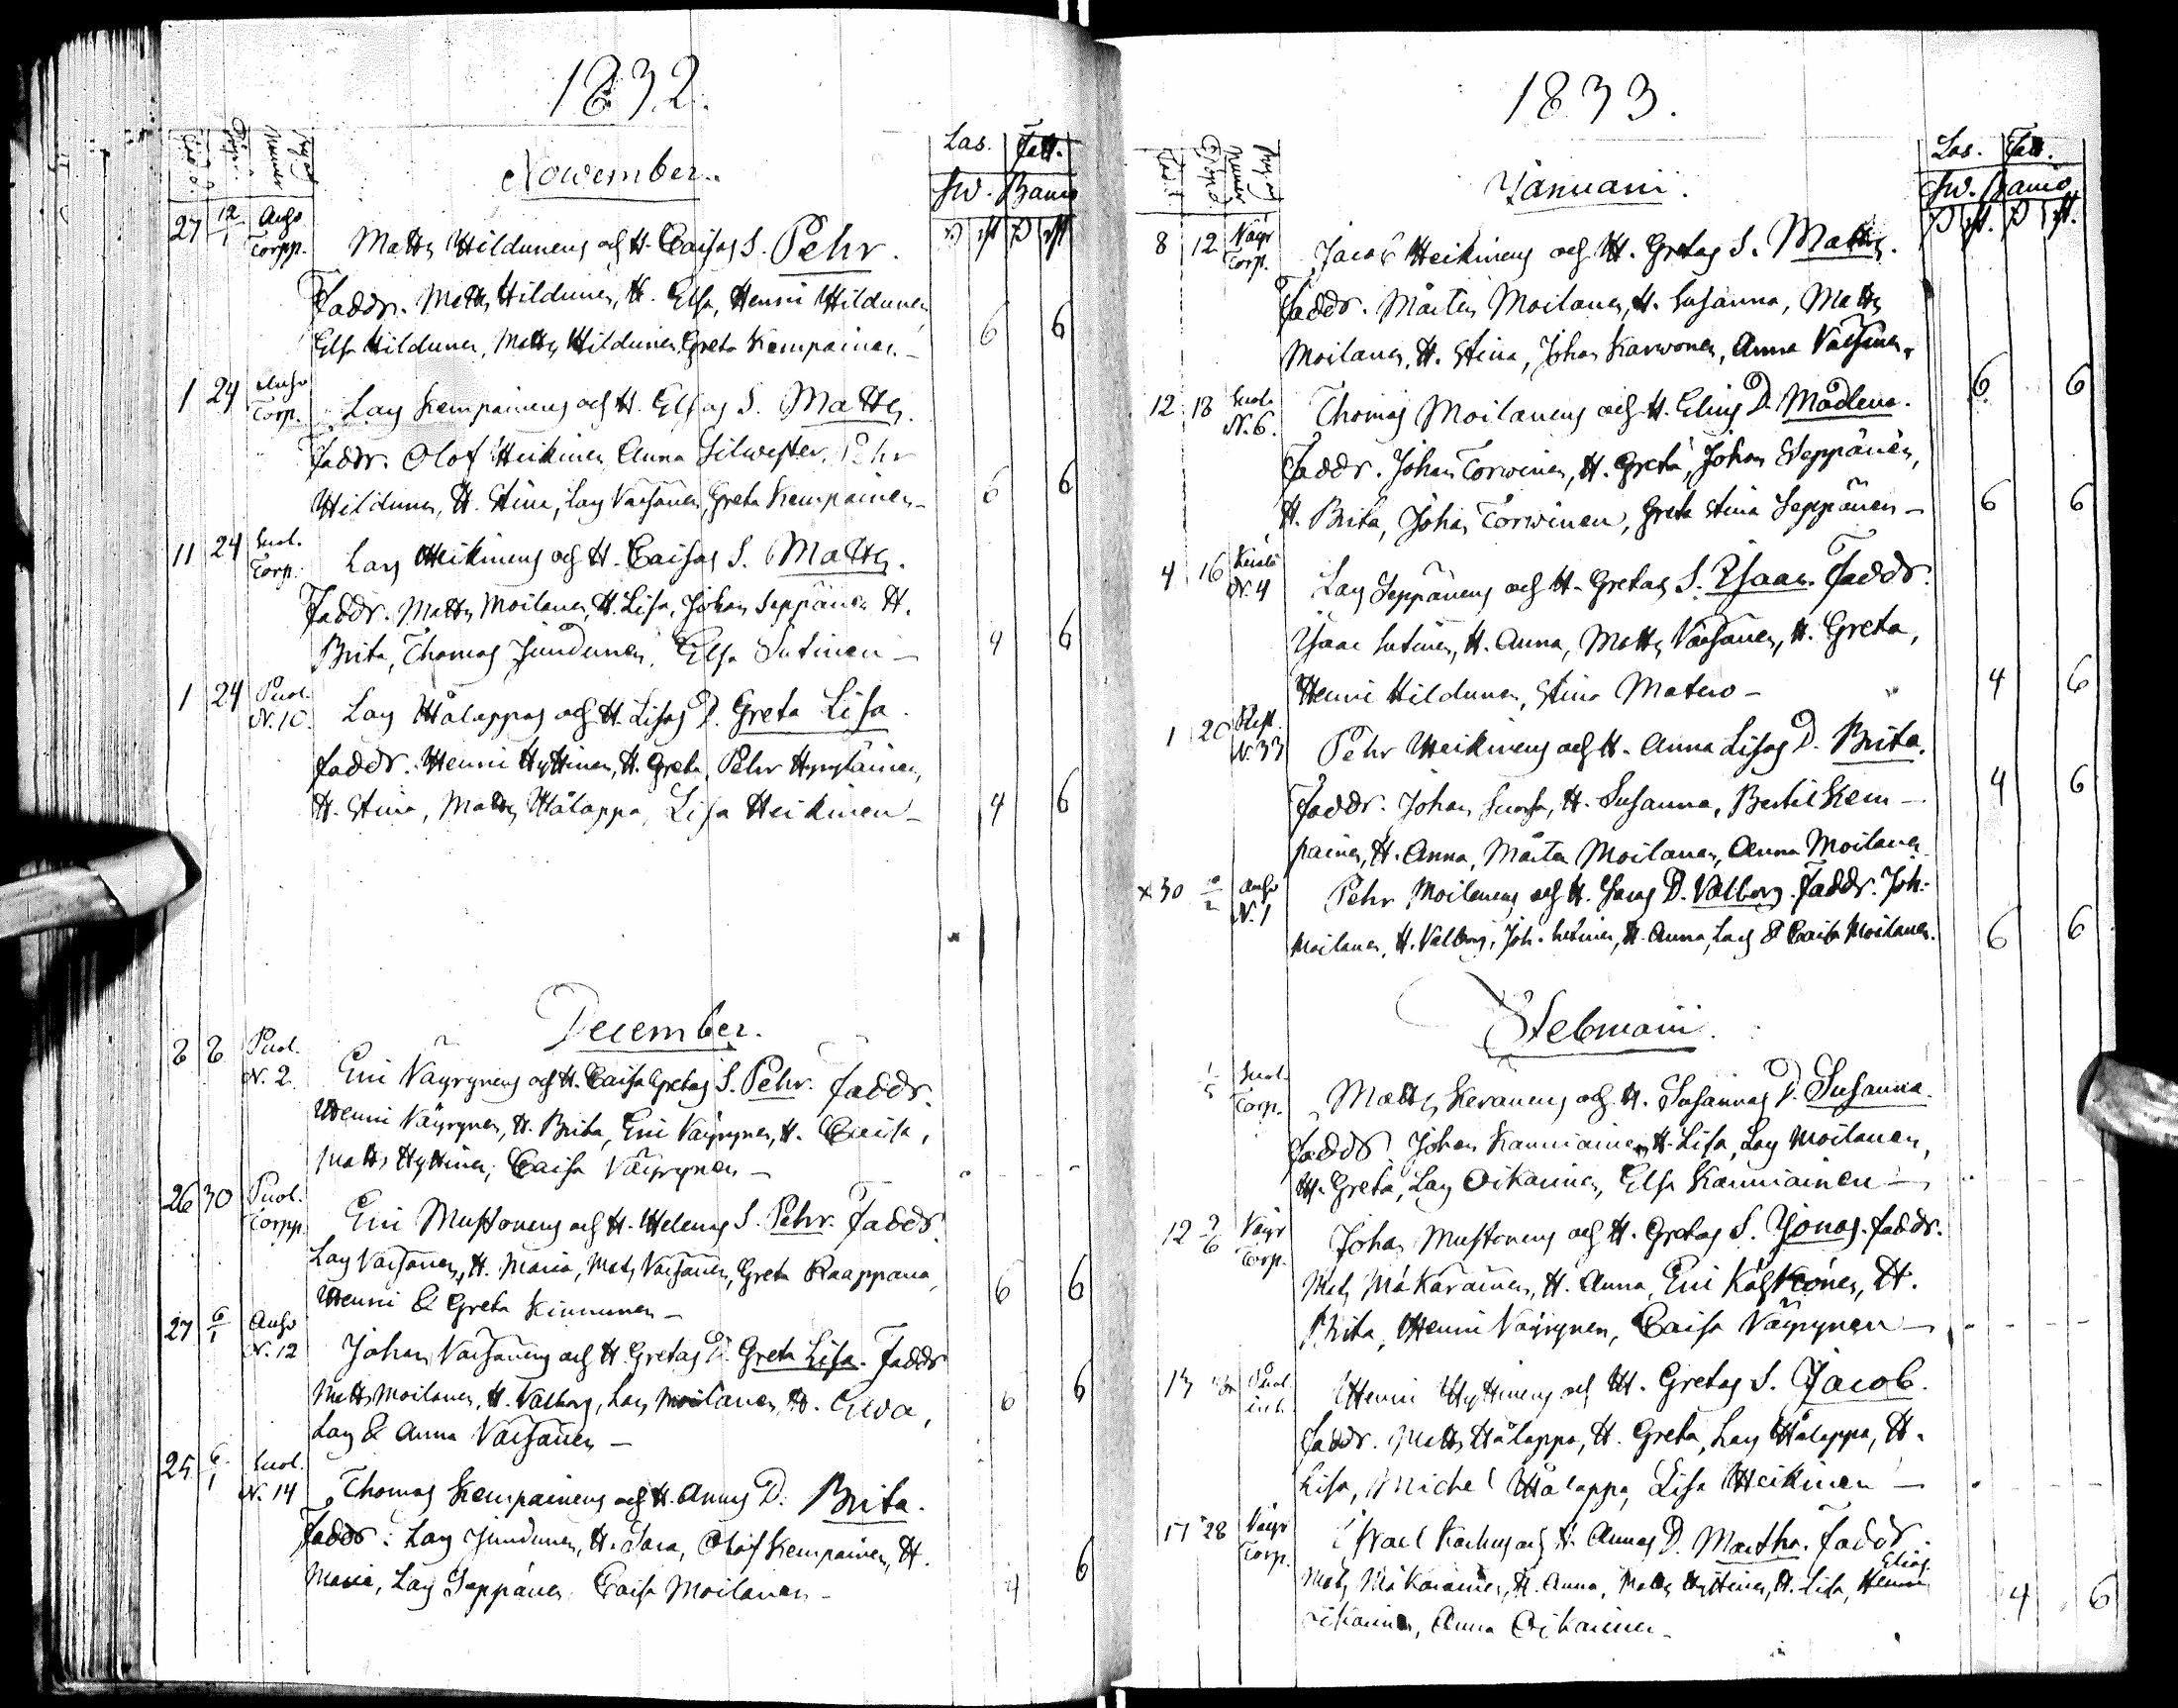 1832.
November.
Las. Fatt.
Sw. Banco
27 12/1 Anho Torpp. Matts Hildunens och H. Caisas S. Pehr.
Faddr. Matts Hildunen, H. Elsa, Henric Hildunen
Elsa Hildunen, Matts Hildunen, Greta Kempainen. — 6 6
1 24 Anho Torp. Lars Kempainens och H. Elsas S. Matts.
Faddr. Olof Heikinen, Anna Silwester, Pehr
Hildunen, H. Stina, Lars Vaisanen, Greta Kempainen — 6 6
11 24 Suol. Torp. Lars Heikinens och H. Caisas S. Matts.
Faddr. Matts Moilanen, H. Lisa, Johan Seppänen H.
Brita, Thomas Jundunen, Elsa Sutinen — 4 6
1 24 Puol. N. 10. Lars Hålappas och H. Lisas D. Greta Lisa.
Faddr. Henric Hyttinen, H. Greta, Pehr Hyrylainen,
H. Stina, Matts Hålappa, Lisa Heikinen — 4 6
December.
8 8 Puol. N. 2. Eric Väyrynens och H. Caisa Gretas S. Pehr. Faddr.
Henric Väyrynen, H. Brita, Eric Väyrynen, H. Caisa,
Matts Hyttinen, Caisa Väyrynen —
26 30 Puol. Torpp. Eric Mustonens och H. Helenas S. Pehr. Faddr.
Lars Vaisanen, H. Maria, Mats Vaisanen, Greta Raappana,
Henric & Greta Kinnunen — 6 6
27 6/1 Anho N. 12 Johan Vaisanens och H. Gretas D. Greta Lisa. Faddr
Matts Moilanen, H. Valborg, Lars Moilanen, H. Ewa, 6 6
Lars & Anna Vaisanen —
25 6/1 Suol. N. 14 Thomas Kempainens och H. Annas D. Brita.
Faddr. Lars Jundunen, H. Sara, Olof Kempainen, H.
Maria, Lars Seppänen, Caisa Moilanen — 4 6
1833.
Januarii.
Las. Fatt.
Sw. Banco
8 12 Väyr Torp. Jacob Heikinens och H. Gretas S. Matts.
Faddr. Mårten Moilanen, H. Susanna, Matts
Moilanen, H. Stina, Johan Karvonen, Anna Vaisanen. 6 6
12 18 Suol. N. 6. Thomas Moilanens och H. Elins D. Madlena.
Faddr. Johan Torvinen, H. Greta, Johan Seppänen,
H. Brita, Johan Torvinen, Greta Stina Seppänen — 6 6
4 16 N. 4 Lars Seppänens och H. Gretas S. Isaac. Faddr.
Isaac Sutinen, H. Anna, Matts Vaisanen, H. Greta,
Henric Hildunen, Stina Matero — 4 6
1 20 N. 33 Pehr Heikinens och H. Anna Lisas D. Brita.
Faddr. Johan, H. Susanna, Bertil Kem- 4 6
painen, H. Anna, Mårten Moilanen, Anna Moilanen
x 30 Anho N. 1 Pehr Moilanens och H. Saras D. Valborg. Faddr. Joh.
Moilanen, H. Valborg, Joh. Sutinen, H. Anna, Lars & Caisa Moilanen. 6 6
Februarii.
1/5 Suol. Torp. Matts Keranens och H. Susannas D. Susanna.
Faddr Johan Kanniainen H. Lisa, Lars Moilanen,
H. Greta, Lars Oikarinen, Elsa Kanniainen —
12 Väyr Torp. Johan Mustonens och H. Gretas S. Jonas. Faddr.
Mats Mäkäräinen, H. Anna, Eric, H.
Brita, Henric Väyrynen, Caisa Väyrynen —
13 Puol. Henric Hyttinens och H. Gretas S. Jacob.
Faddr. Matts Hålappa, H. Greta, Lars Hålappa, H.
Lisa, Michel Hålappa, Lisa Heikinen —
28 Väyr Torp. Israel och H. Annas D. Martha. Faddr.
Elias
Mats Mäkäräinen, H. Anna, Matts Hyttinen, H. Lisa, Henric 4 6
Oikarinen, Anna Oikarinen —